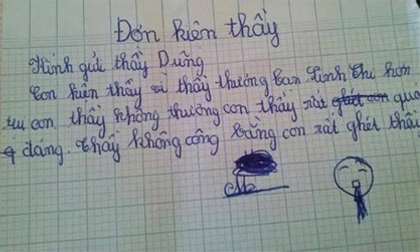 Đơn kiên thầy
Kính gửi thầy Dũng
Con kiên thầy vì thầy thương bạn Linh Chi hơn
con. thầy không thương con thầy rất ghét con quá
đang. thầy không công bằng con rất ghét thầy